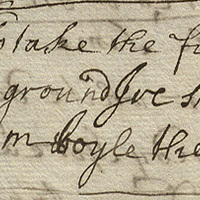 take the fi
ground Ive s
m boyle the